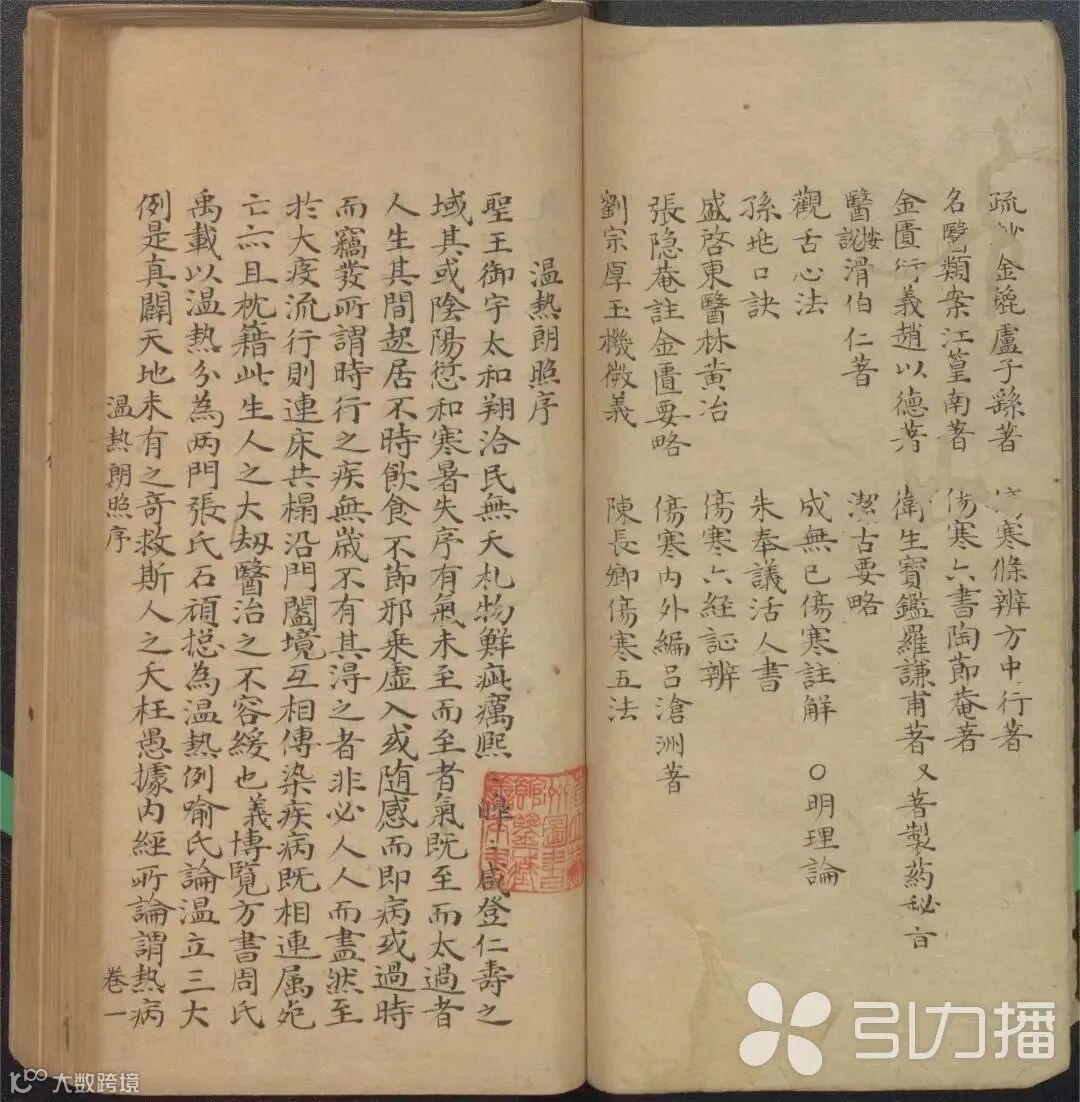 疏抄金錍盧子繇著
寒條辨方中行著
名醫類案江篁南著
傷寒六書陶節菴著
金匱衍義趙以德著
衛生寶鑑羅謙甫著又著製葯秘旨
醫說滑伯仁著
潔古要略
觀舌心法
成無已傷寒註解 〇明理論
孫兆口訣
朱奉議活人書
盛啓東醫林黃冶
傷寒六經証辨
張隐菴註金匱要略
傷寒內外編呂滄洲著
劉宗厚玉機微義
陳長卿傷寒五法
温熱朗照序
聖王御宇太和翔洽民無夭札物鮮疵癘熙皞咸登仁壽之
域其或陰陽愆和寒暑失序有氣未至而至者氣既至而太過者
人生其間起居不時飲食不節邪乗虛入或随感而即病或過時
而竊發所謂時行之疾無歲不有其淂之者非必人人而盡然至
扵大疫流行則連床共榻沿門闔境互相傳染疾病既相連属死
亡亦且枕籍此生人之大刼醫治之不容緩也義博覽方書周氏
禹載以温熱分為两門張氏石頑揔為温熱例喻氏論温立三大
例是真闢天地未有之奇救斯人之夭枉愚據內經所論謂熱病
温熱朗照序
卷一
引力播
大数跨境